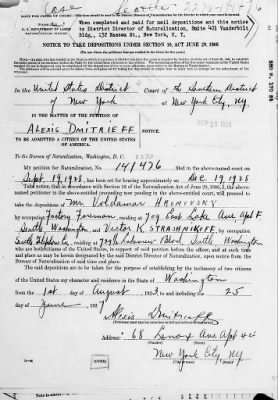 When completed and paid for mail depositions and this notice
to District Director of Naturalization, Suite 401 Vanderbilt
Bldg., 132 Nassau St., New York, N. Y.
U. S. DEPARTMENT OF LABOR
NOTICE TO TAKE DEPOSITIONS UNDER SECTION 10, ACT JUNE 29, 1906
In the United States District Court of The Southern District
of New York at New York City, NY
IN THE MATTER OF THE PETITION OF
ALEXIS DMITRIEFF
NOTICE.
TO BE ADMITTED A CITIZEN OF THE UNITED STATES
OF AMERICA.
To the Bureau of Naturalization, Washington, D. C.
My petition for naturalization, No. 141476, filed in the above-entitled court on
Sept 19, 1928, has been set for hearing provisionally on Dec 19, 1928
Take notice, that in accordance with Section 10 of the Naturalization Act of June 29, 1906, I, the above-
named petitioner in the above-entitled proceeding now pending in the above-entitled court, will proceed to
take the depositions of Mr Voldamar
by occupation Factory Foreman, residing at East Lake Ave Apt F
Seattle Washington and Victor K STRASHNIKOFF, by occupation
residing at Seattle Washington
who are both citizens of the United States, in support of said petition before the officer, and at such time
and place as may be herein designated by the said District Director of Naturalization, upon notice from the
Bureau of Naturalization of said time and place.
The said depositions are to be taken for the purpose of establishing by the testimony of two citizens
of the United States my character and residence in the State of Washington
from the 1st day of August, 1923, to and including the 25
day of June, 1927
Alexis Dmitrieff
Address: 68 Lenox Ave Apt 44
New York City, NY